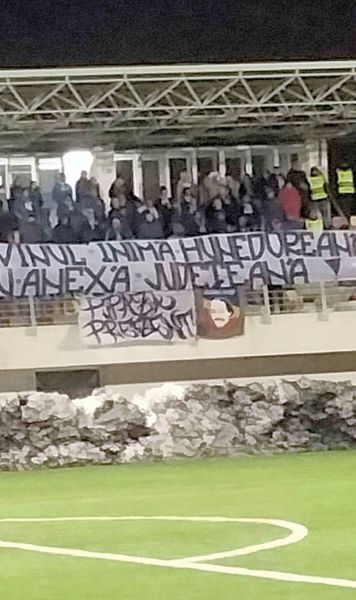 VINUL · INIMA HUNEDOREANĂ
ANEXĂ · JUDEȚEANĂ
PREZENT!